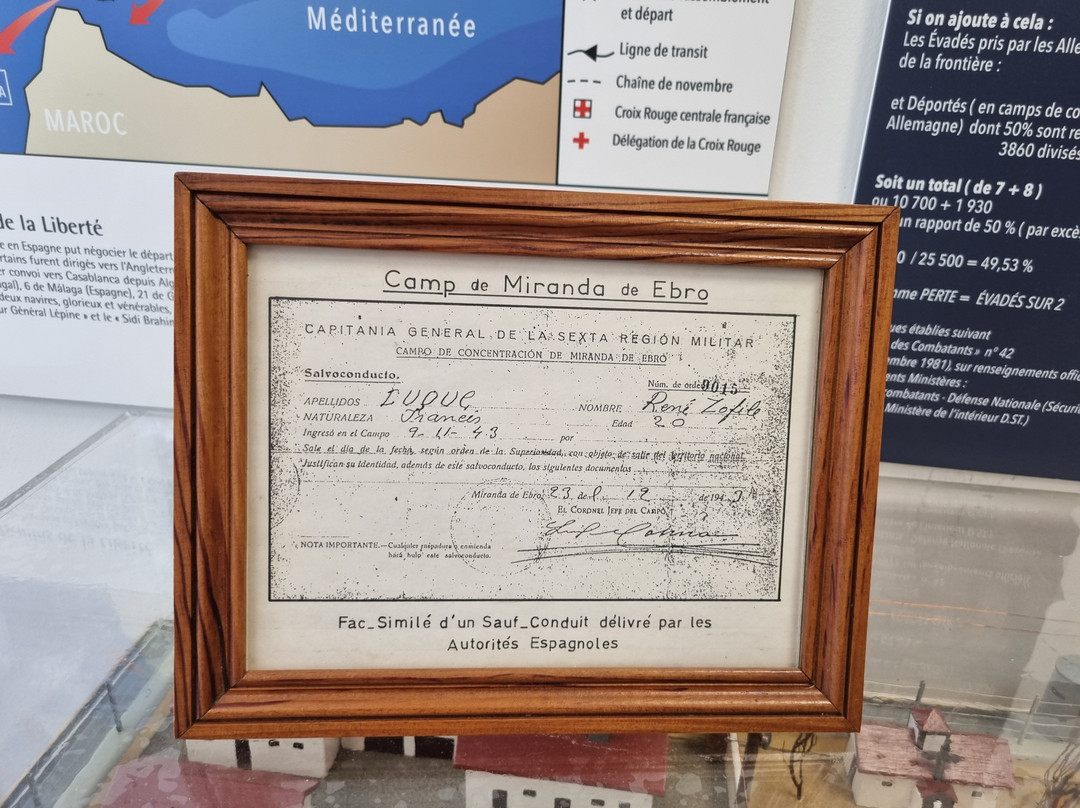 Méditerranée
MAROC
et départ
Ligne de transit
Chaîne de novembre
Croix Rouge centrale française
Délégation de la Croix Rouge
de la Liberté
e en Espagne put négocier le départ
rtains furent dirigés vers l'Angleterr
er convoi vers Casablanca depuis Alg
gal), 6 de Málaga (Espagne), 21 de G
deux navires, glorieux et vénérables,
ur Général Lépine » et le « Sidi Brahim
Si on ajoute à cela :
Les Évadés pris par les Alle
de la frontière :
et Déportés ( en camps de co
Allemagne) dont 50% sont re
3860 divisés
Soit un total ( de 7 + 8 )
ou 10 700 + 1 930
un rapport de 50 % ( par excè
0 / 25 500 = 49,53 %
mme PERTE = ÉVADÉS SUR 2
ues établies suivant
des Combatants » n° 42
mbre 1981), sur renseignements offic
ents Ministères :
ombatants - Défense Nationale (Sécuri
Ministère de l'intérieur D.ST.)
Camp de Miranda de Ebro
CAPITANIA GENERAL DE LA SEXTA REGIÓN MILITAR
CAMPO DE CONCENTRACIÓN DE MIRANDA DE EBRO
Salvoconducto.
Núm. de orden 9015
APELLIDOS
NOMBRE René Zofile
NATURALEZA Francis
Edad 20
Ingresó en el Campo 9-11-43 por
Sale el día de la fecha, según orden de la Superioridad, con objeto de salir del territorio nacional.
Justifican su identidad, además de este salvoconducto, los siguientes documentos
Miranda de Ebro, 23 de 12 de 194 3
EL CORONEL JEFE DEL CAMPO,
NOTA IMPORTANTE.—Cualquier raspadura o enmienda
hará nulo este salvoconducto.
Fac_Similé d'un Sauf_Conduit délivré par les
Autorités Espagnoles